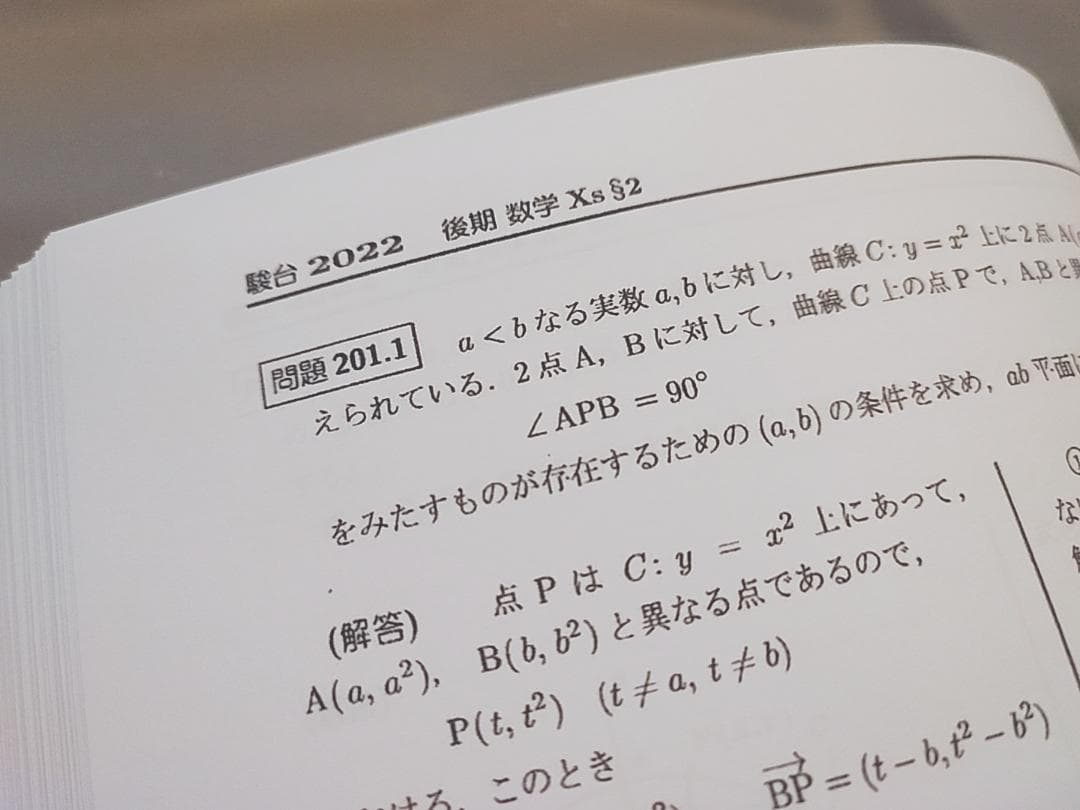 駿台 2022 後期 数学 Xs §2
問題 201.1 a < b なる実数 a, b に対し，曲線 C : y = x² 上に 2 点 A(
えられている．2 点 A，B に対して，曲線 C 上の点 P で，A,B と
∠APB = 90°
をみたすものが存在するための (a, b) の条件を求め，ab 平面
(解答) 点 P は C : y = x² 上にあって，
A(a, a²)，B(b, b²) と異なる点であるので，
P(t, t²) (t ≠ a, t ≠ b)
このとき
BP = (t − b, t² − b²)
①
な